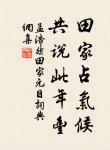 田家占氣候
共說此年豐
孟浩然田家元日詞典
網集